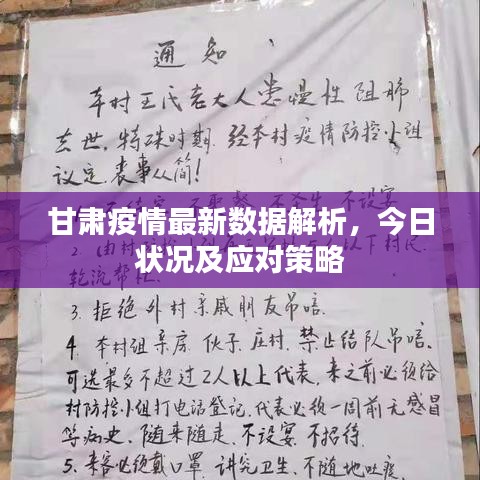 通知
本村王氏老大人患慢性阻肺
去世,特殊时期.经本村疫情防控小组
议定,丧事从简!
甘肃疫情最新数据解析，今日
状况及应对策略
轮流帮忙.
3.拒绝外村亲戚朋友吊唁.
4.本村组亲房.伙子.庄村.禁止结队吊唁.
可选最多不超过2人以上代表,来之前必须给
村防控小组打电话登记,代表必须一周前无感冒
等病史.随来随走.不设宴.不招待.
5、来客必须戴口罩.讲究卫生.不随地吐痰.